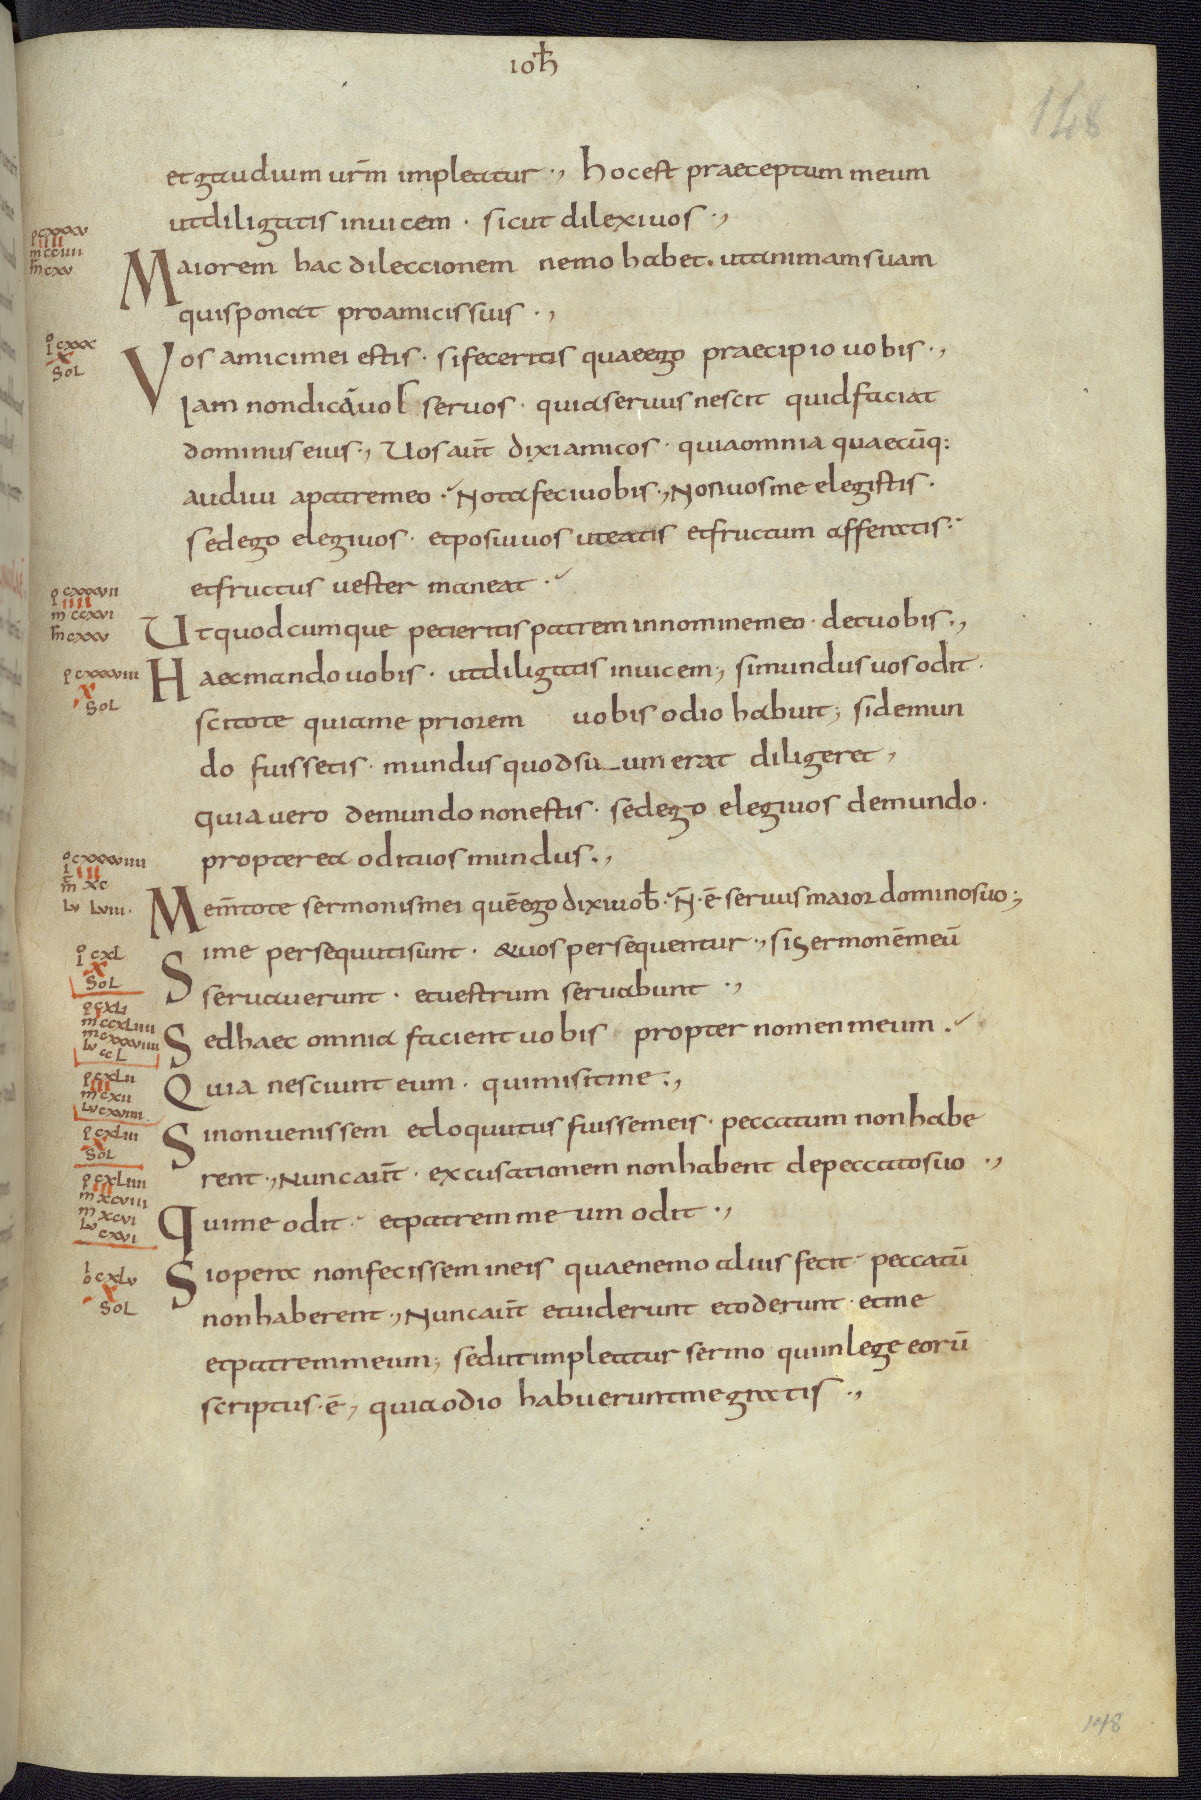 ioħ
148
et gaudium ur̄m impleatur ., hoc est praeceptum meum
ut diligatis inuicem . sicut dilexi uos .,
Maiorem hac dileccionem nemo habet . ut animam suam
quis ponat pro amicis suis .,
Vos amici mei estis . si feceritis quae ego praecipio uobis .,
Iam non dicā uos seruos . quia seruus nescit quid faciat
dominus eius ., Uos aūt dixi amicos . quia omnia quaecūq:
audiui a patre meo . Nota feci uobis ., Non uos me elegistis .
sed ego elegi uos . et posui uos ut eatis et fructum afferatis .
et fructus uester maneat .
Ut quodcumque petieritis patrem in nomine meo . det uobis .,
Haec mando uobis . ut diligatis inuicem ; si mundus uos odit .
scitote quia me priorem uobis odio habuit ; si de mun
do fuissetis . mundus quod suum erat diligeret ,
quia uero de mundo non estis . sed ego elegi uos de mundo .
propterea odit uos mundus .,
Mem̄tote sermonis mei quē ego dixi uob̄ . N̄ . ē seruus maior domino suo ;
Si me persequuti sunt . & uos persequentur ., si sermonē meū
seruauerunt . et uestrum seruabunt .,
Sed haec omnia facient uobis propter nomen meum .
Quia nesciunt eum . qui misit me .,
Si non uenissem et loquutus fuissem eis . peccatum non habe
rent ., Nunc aūt . excusationem non habent de peccato suo .,
Qui me odit . et patrem meum odit .,
Si opera non fecissem in eis quae nemo alius fecit . peccatū
non haberent ., Nunc aūt et uiderunt et oderunt . et me
et patrem meum ; sed ut impleatur sermo qui in lege eorū
scriptus . ē , quia odio habuerunt me gratis .,
148